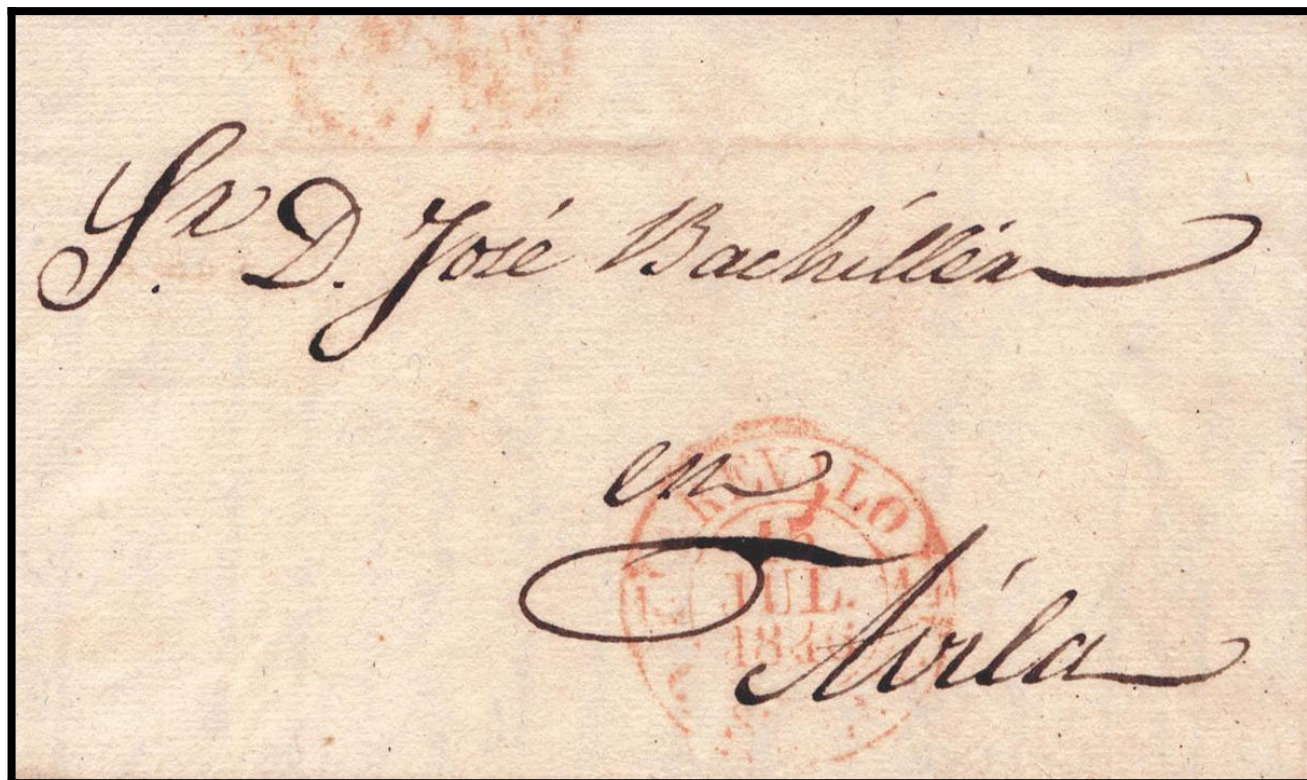 Sr. D. José Bachillér
en
Avila
AREVALO
15
JUL.
1846